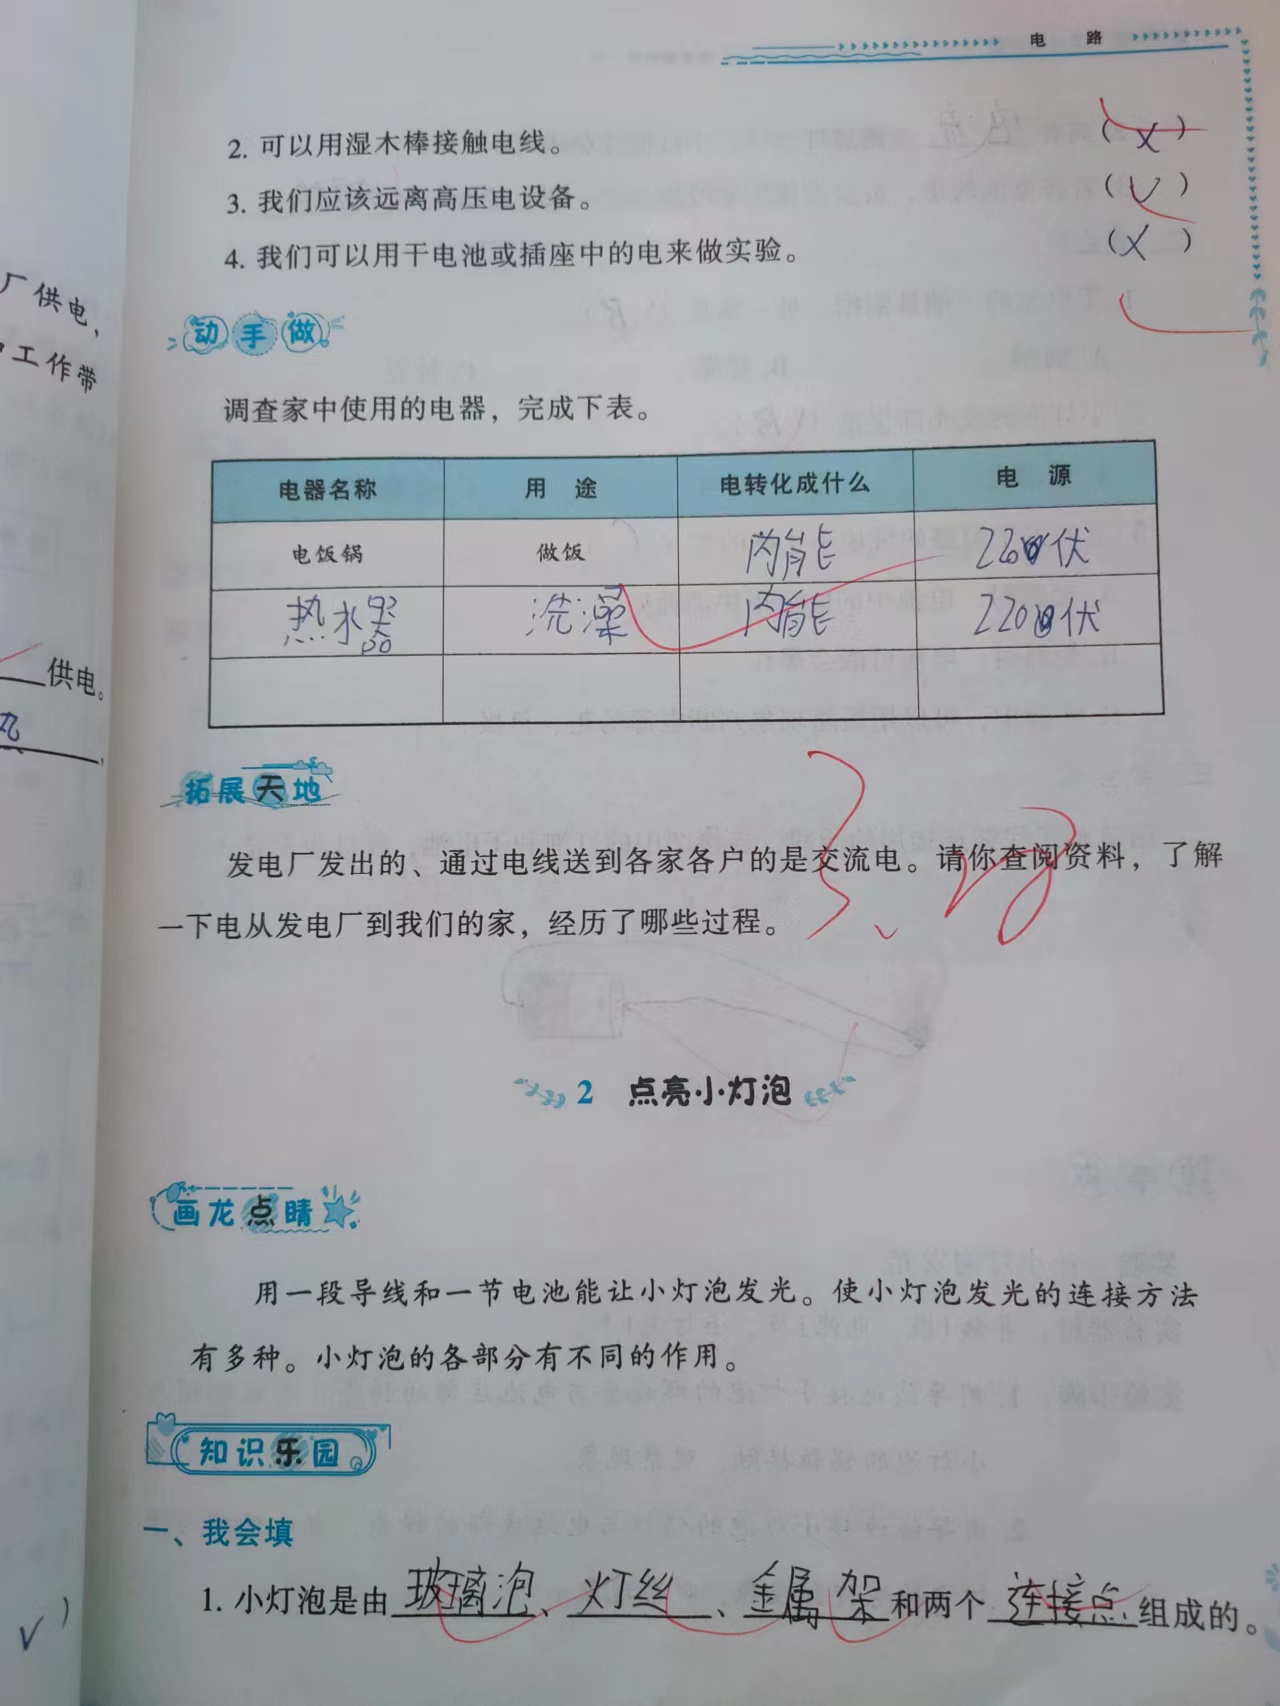 电 路
2. 可以用湿木棒接触电线。 (X)
3. 我们应该远离高压电设备。 (√)
4. 我们可以用干电池或插座中的电来做实验。 (X)
厂供电，
工作带
动手做
调查家中使用的电器，完成下表。
电器名称 用 途 电转化成什么 电 源
电饭锅 做饭 内能 伏
热水器 洗澡 内能 220伏
供电。
拓展天地
发电厂发出的、通过电线送到各家各户的是交流电。请你查阅资料，了解
一下电从发电厂到我们的家，经历了哪些过程。
2 点亮小灯泡
画龙点睛
用一段导线和一节电池能让小灯泡发光。使小灯泡发光的连接方法
有多种。小灯泡的各部分有不同的作用。
知识乐园
一、我会填
1. 小灯泡是由玻璃泡、灯丝、金属架和两个连接点组成的。
√)